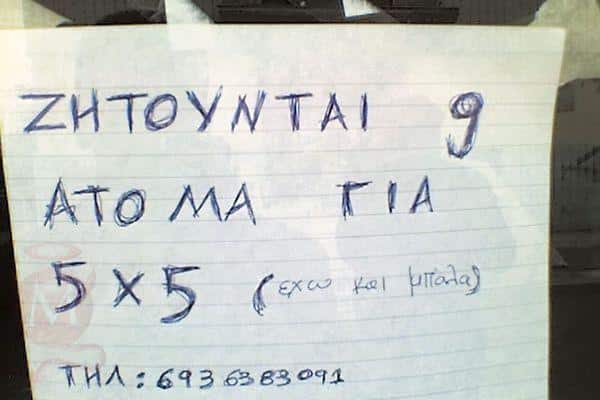 ΖΗΤΟΥΝΤΑΙ 9
ΑΤΟΜΑ ΓΙΑ
5 Χ 5 (έχω και μπάλα)
ΤΗΛ: 6936383091